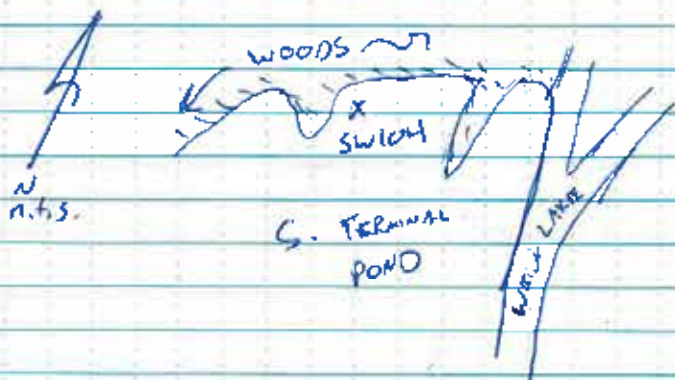 WOODS
x
SW104
N
n.t.s.
S. TERMINAL
POND
LAKE